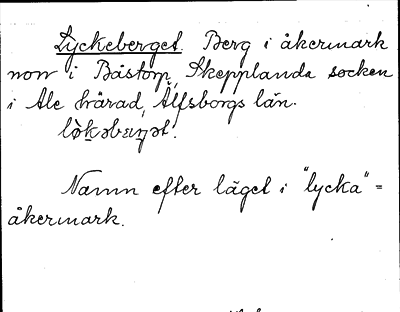 Lyckeberget. Berg i åkermark
norr i Båstorp, Skepplanda socken
i Ale härad, Älfsborgs län.

Namn efter läget i "lycka" =
åkermark.